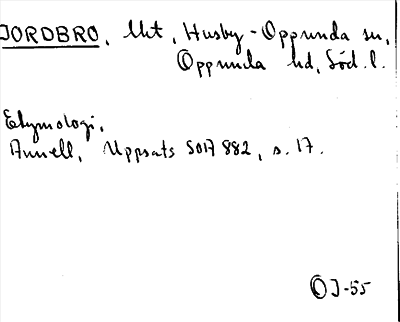 JORDBRO, Ut, Husby-Oppunda sn,
Oppunda hd, Söd. l.
Etymologi,
Annell, Uppsats SOIA 882, s. 17.
OJ-55